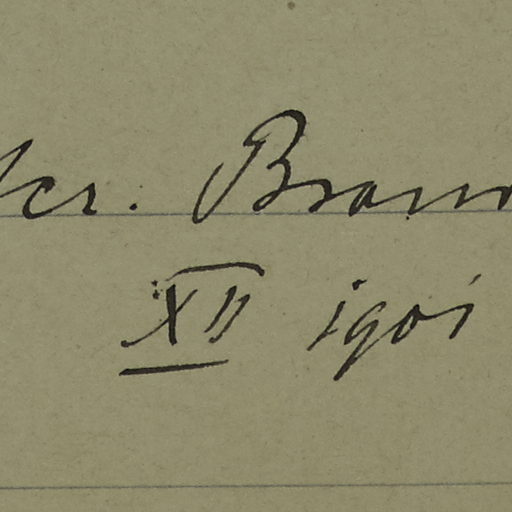 scr. Brann
XII 1901